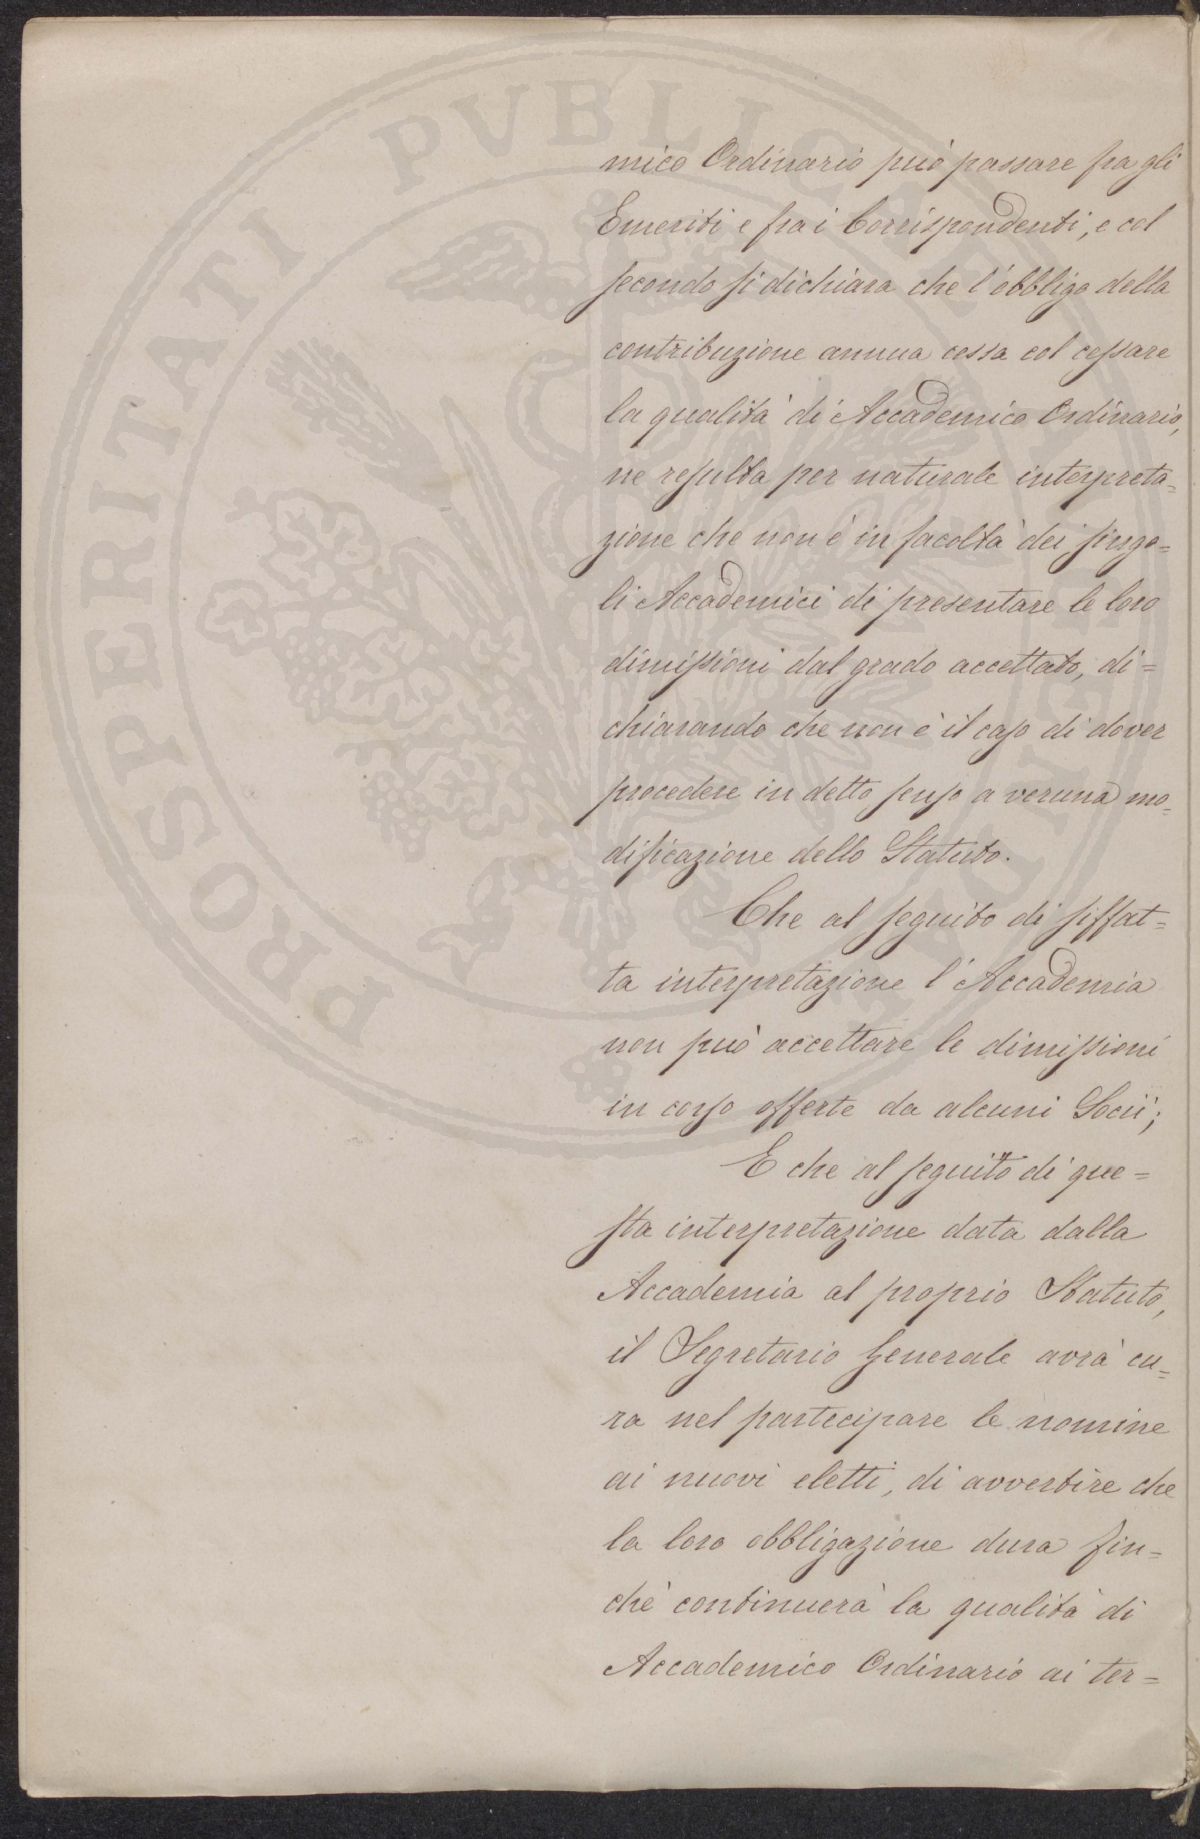 PROSPERITATI PVBLICAE
mico Ordinario può passare fra gli
Emeriti e fra i Corrispondenti, e col
secondo si dichiara che l'obbligo della
contribuzione annua cessa col cessare
la qualità di Accademico Ordinario,
ne resulta per naturale interpreta=
zione che non è in facoltà dei singo=
li Accademici di presentare le loro
dimissioni dal grado accettato, di=
chiarando che non è il caso di dover
procedere in detto senso a veruna mo=
dificazione dello Statuto.
Che al seguito di siffat=
ta interpretazione l'Accademia
non può accettare le dimissioni
in corso offerte da alcuni Socii;
E che al seguito di que=
sta interpretazione data dalla
Accademia al proprio Statuto,
il Segretario Generale avrà cu=
ra nel partecipare le nomine
ai nuovi eletti, di avvertire che
la loro obbligazione dura fin=
chè continuerà la qualità di
Accademico Ordinario ai ter=